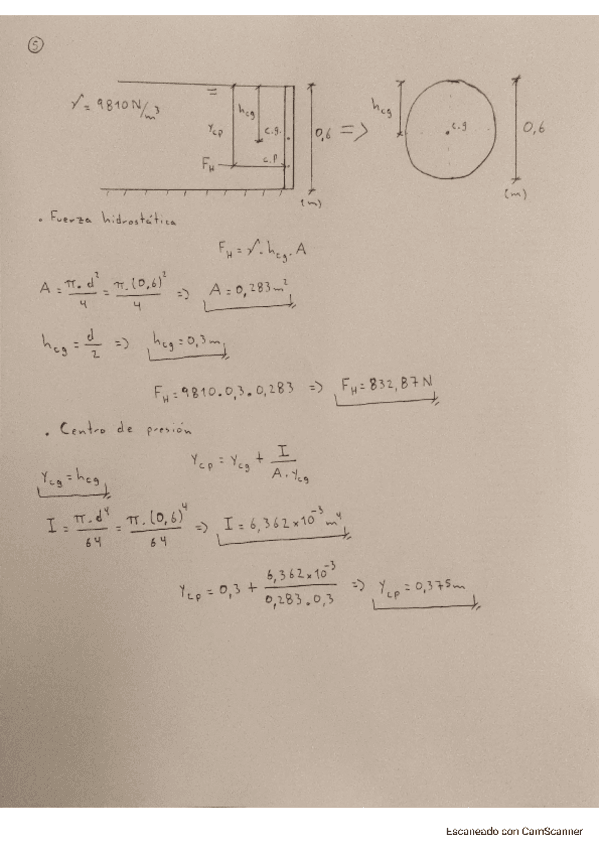 5
γ = 9810 N/m³
Ycp
hcg
c.g.
FH
c.p
0,6
(m)
=>
hcg
c.g
0,6
(m)
. Fuerza hidrostática
FH = γ . hcg . A
A = π . d²/4 = π . (0,6)²/4 => A = 0,283 m²
hcg = d/2 => hcg = 0,3 m
FH = 9810 . 0,3 . 0,283 => FH = 832,87 N
. Centro de presión
Ycp = Ycg + I/(A . Ycg)
Ycg = hcg
I = π . d⁴/64 = π . (0,6)⁴/64 => I = 6,362 x 10⁻³ m⁴
Ycp = 0,3 + 6,362 x 10⁻³/(0,283 . 0,3) => Ycp = 0,375 m
Escaneado con CamScanner